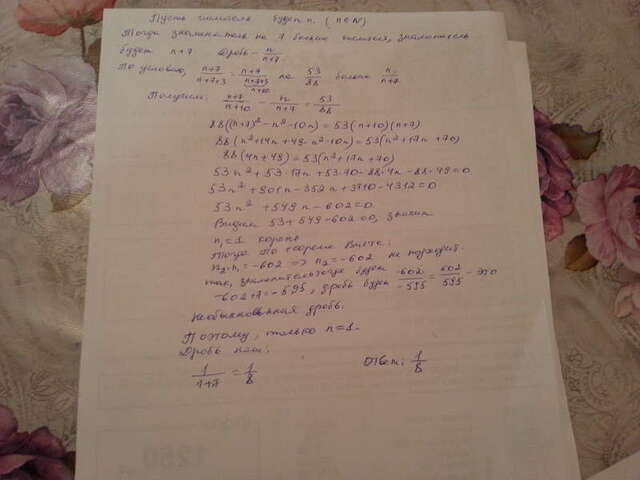 Пусть числитель будет n. (n∈N)
Тогда знаменатель на 7 больше числителя, знаменатель
будет n+7 Дробь - n/(n+7).
По условию, (n+7)/(n+7+3) = (n+7)/(n+10) на 53/88 больше n/(n+7)
Получим: (n+7)/(n+10) - n/(n+7) = 53/88
88((n+7)² - n² - 10n) = 53(n+10)(n+7)
88(n² + 14n + 49 - n² - 10n) = 53(n² + 17n + 70)
88(4n + 49) = 53(n² + 17n + 70)
53n² + 53·17n + 53·70 - 88·4n - 88·49 = 0
53n² + 901n - 352n + 3710 - 4312 = 0
53n² + 549n - 602 = 0
Видим 53 + 549 - 602 = 0, значит
n₁ = 1 корень
Тогда по теореме Виета:
n₂·n₁ = -602 => n₂ = -602 не подходит.
так, знаменатель тогда будет
-602+7 = -595, дробь будет -602/-595 = 602/595 - это
необыкновенная дробь.
Поэтому, только n = 1.
Дробь
1/(1+7) = 1/8
Ответ: 1/8
1250